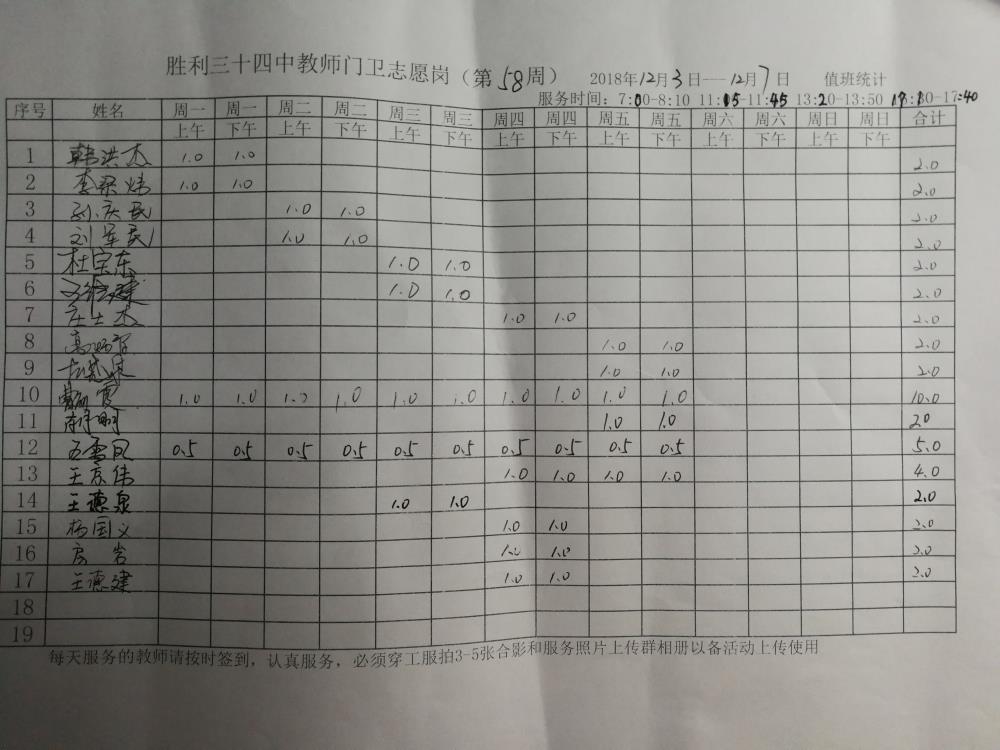 胜利三十四中教师门卫志愿岗（第58周） 2018年12月3日---12月7日 值班统计
服务时间：7:00-8:10 11:05-11:45 13:20-13:50 -17:40
序号 姓名 周一 周一 周二 周二 周三 周三 周四 周四 周五 周五 周六 周六 周日 周日 合计
上午 下午 上午 下午 上午 下午 上午 下午 上午 下午 上午 下午 上午 下午
1 韩洪杰 1.0 1.0 2.0
2 李梁炜 1.0 1.0 2.0
3 孙庆民 1.0 1.0 2.0
4 刘军民 1.0 1.0 2.0
5 杜宝东 1.0 1.0 2.0
6 1.0 1.0 2.0
7 庄士杰 1.0 1.0 2.0
8 1.0 1.0 2.0
9 1.0 1.0 2.0
10 1.0 1.0 1.0 1.0 1.0 1.0 1.0 1.0 1.0 1.0 10.0
11 1.0 1.0 20
12 0.5 0.5 0.5 0.5 0.5 0.5 0.5 0.5 0.5 0.5 5.0
13 王京伟 1.0 1.0 1.0 1.0 4.0
14 王德泉 1.0 1.0 2.0
15 杨国义 1.0 1.0 2.0
16 房岩 1.0 1.0 2.0
17 王德建 1.0 1.0 2.0
18
19
每天服务的教师请按时签到，认真服务，必须穿工服拍3-5张合影和服务照片上传群相册以备活动上传使用